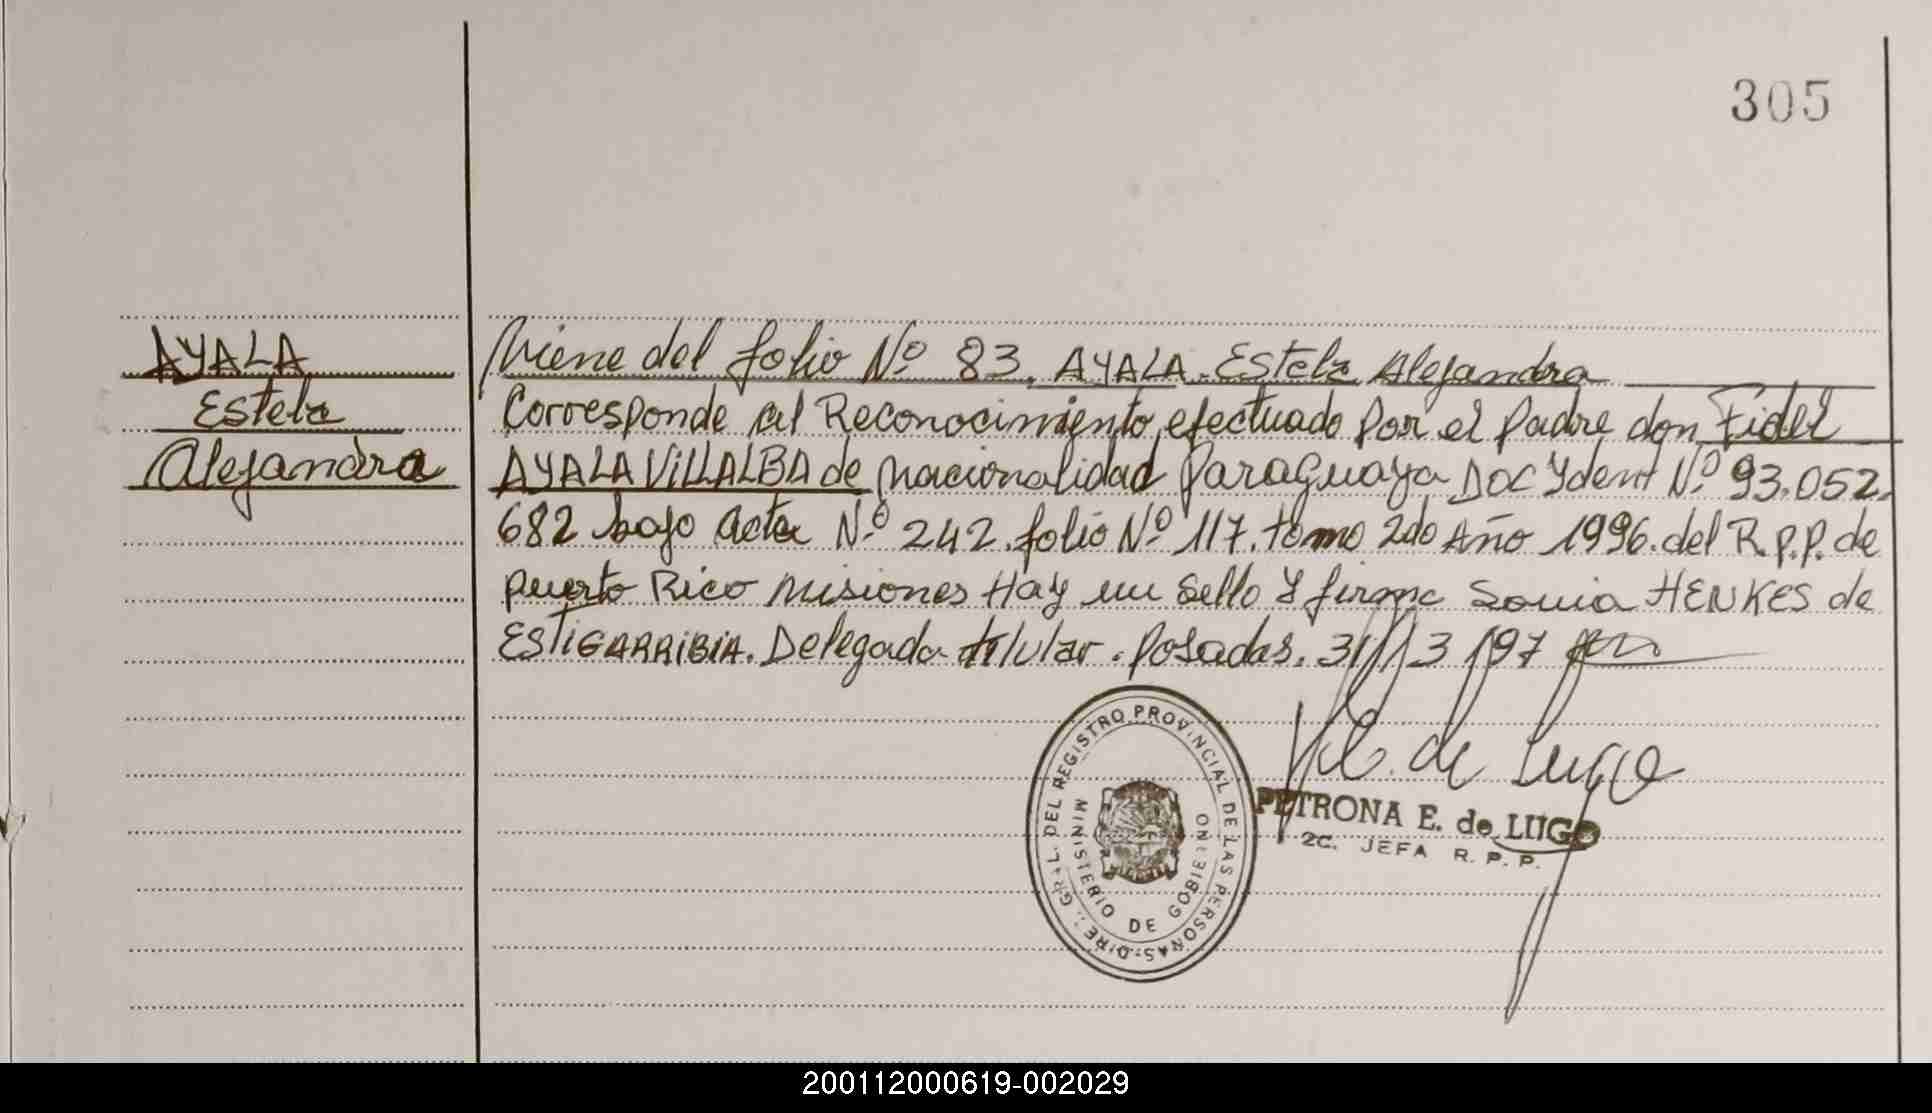 305
AYALA
Estela
Alejandra
Viene del folio Nº 83. AYALA. Estela Alejandra
Corresponde al Reconocimiento efectuado por el padre don Fidel
AYALA VILLALBA de nacionalidad paraguaya Doc Ydent Nº 93.052.
682 bajo acta Nº 242. folio Nº 117. tomo 2do Año 1996. del R.P.P. de
puerto Rico Misiones Hay un Sello Y firma Sonia HENKES de
ESTIGARRIBIA. Delegada titular. Posadas. 31/13/97
de Lugo
DIREC. GRAL. DEL REGISTRO PROVINCIAL DE LAS PERSONAS
MINISTERIO DE GOBIERNO
PETRONA E. de LUGO
2C. JEFA R. P. P.
200112000619-002029